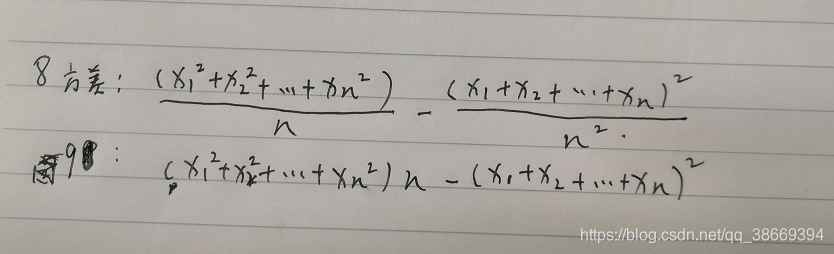 8方差: (x₁²+x₂²+…+xn²)/n - (x₁+x₂+…+xn)²/n².
98: (x₁²+x₂²+…+xn²)n-(x₁+x₂+…+xn)²
https://blog.csdn.net/qq_38669394